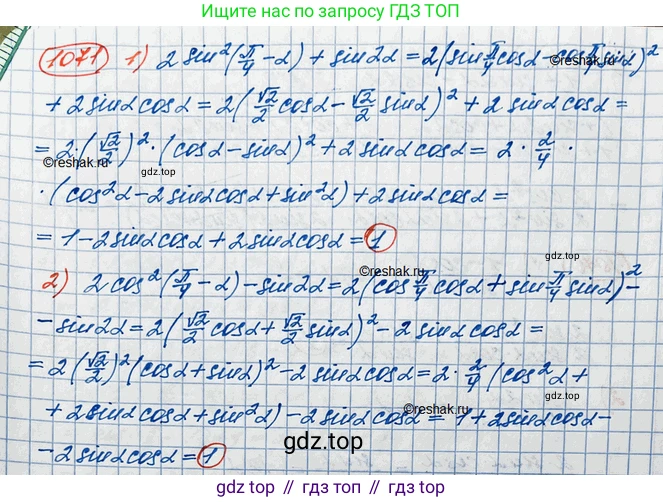 Ищите нас по запросу ГДЗ ТОП
1071 1) 2 sin²(π/4 - α) + sin2α = 2(sin π/4 cosα - cos π/4 sinα)²
+ 2 sinα cosα = 2(√2/2 cosα - √2/2 sinα)² + 2 sinα cosα =
= 2·(√2/2)²·(cosα - sinα)² + 2 sinα cosα = 2 · 2/4 ·
©reshak.ru
©reshak.ru
·(cos²α - 2 sinα cosα + sin²α) + 2 sinα cosα =
= 1 - 2 sinα cosα + 2 sinα cosα = 1
©reshak.ru
2) 2 cos²(π/4 - α) - sin2α = 2(cos π/4 cosα + sin π/4 sinα)² -
- sin2α = 2(√2/2 cosα + √2/2 sinα)² - 2 sinα cosα =
= 2(√2/2)²(cosα + sinα)² - 2 sinα cosα = 2 · 2/4 (cos²α +
©reshak.ru
+ 2 sinα cosα + sin²α) - 2 sinα cosα = 1 + 2 sinα cosα -
©reshak.ru
gdz.top
- 2 sinα cosα = 1
gdz.top // гдз.топ // gdz.top